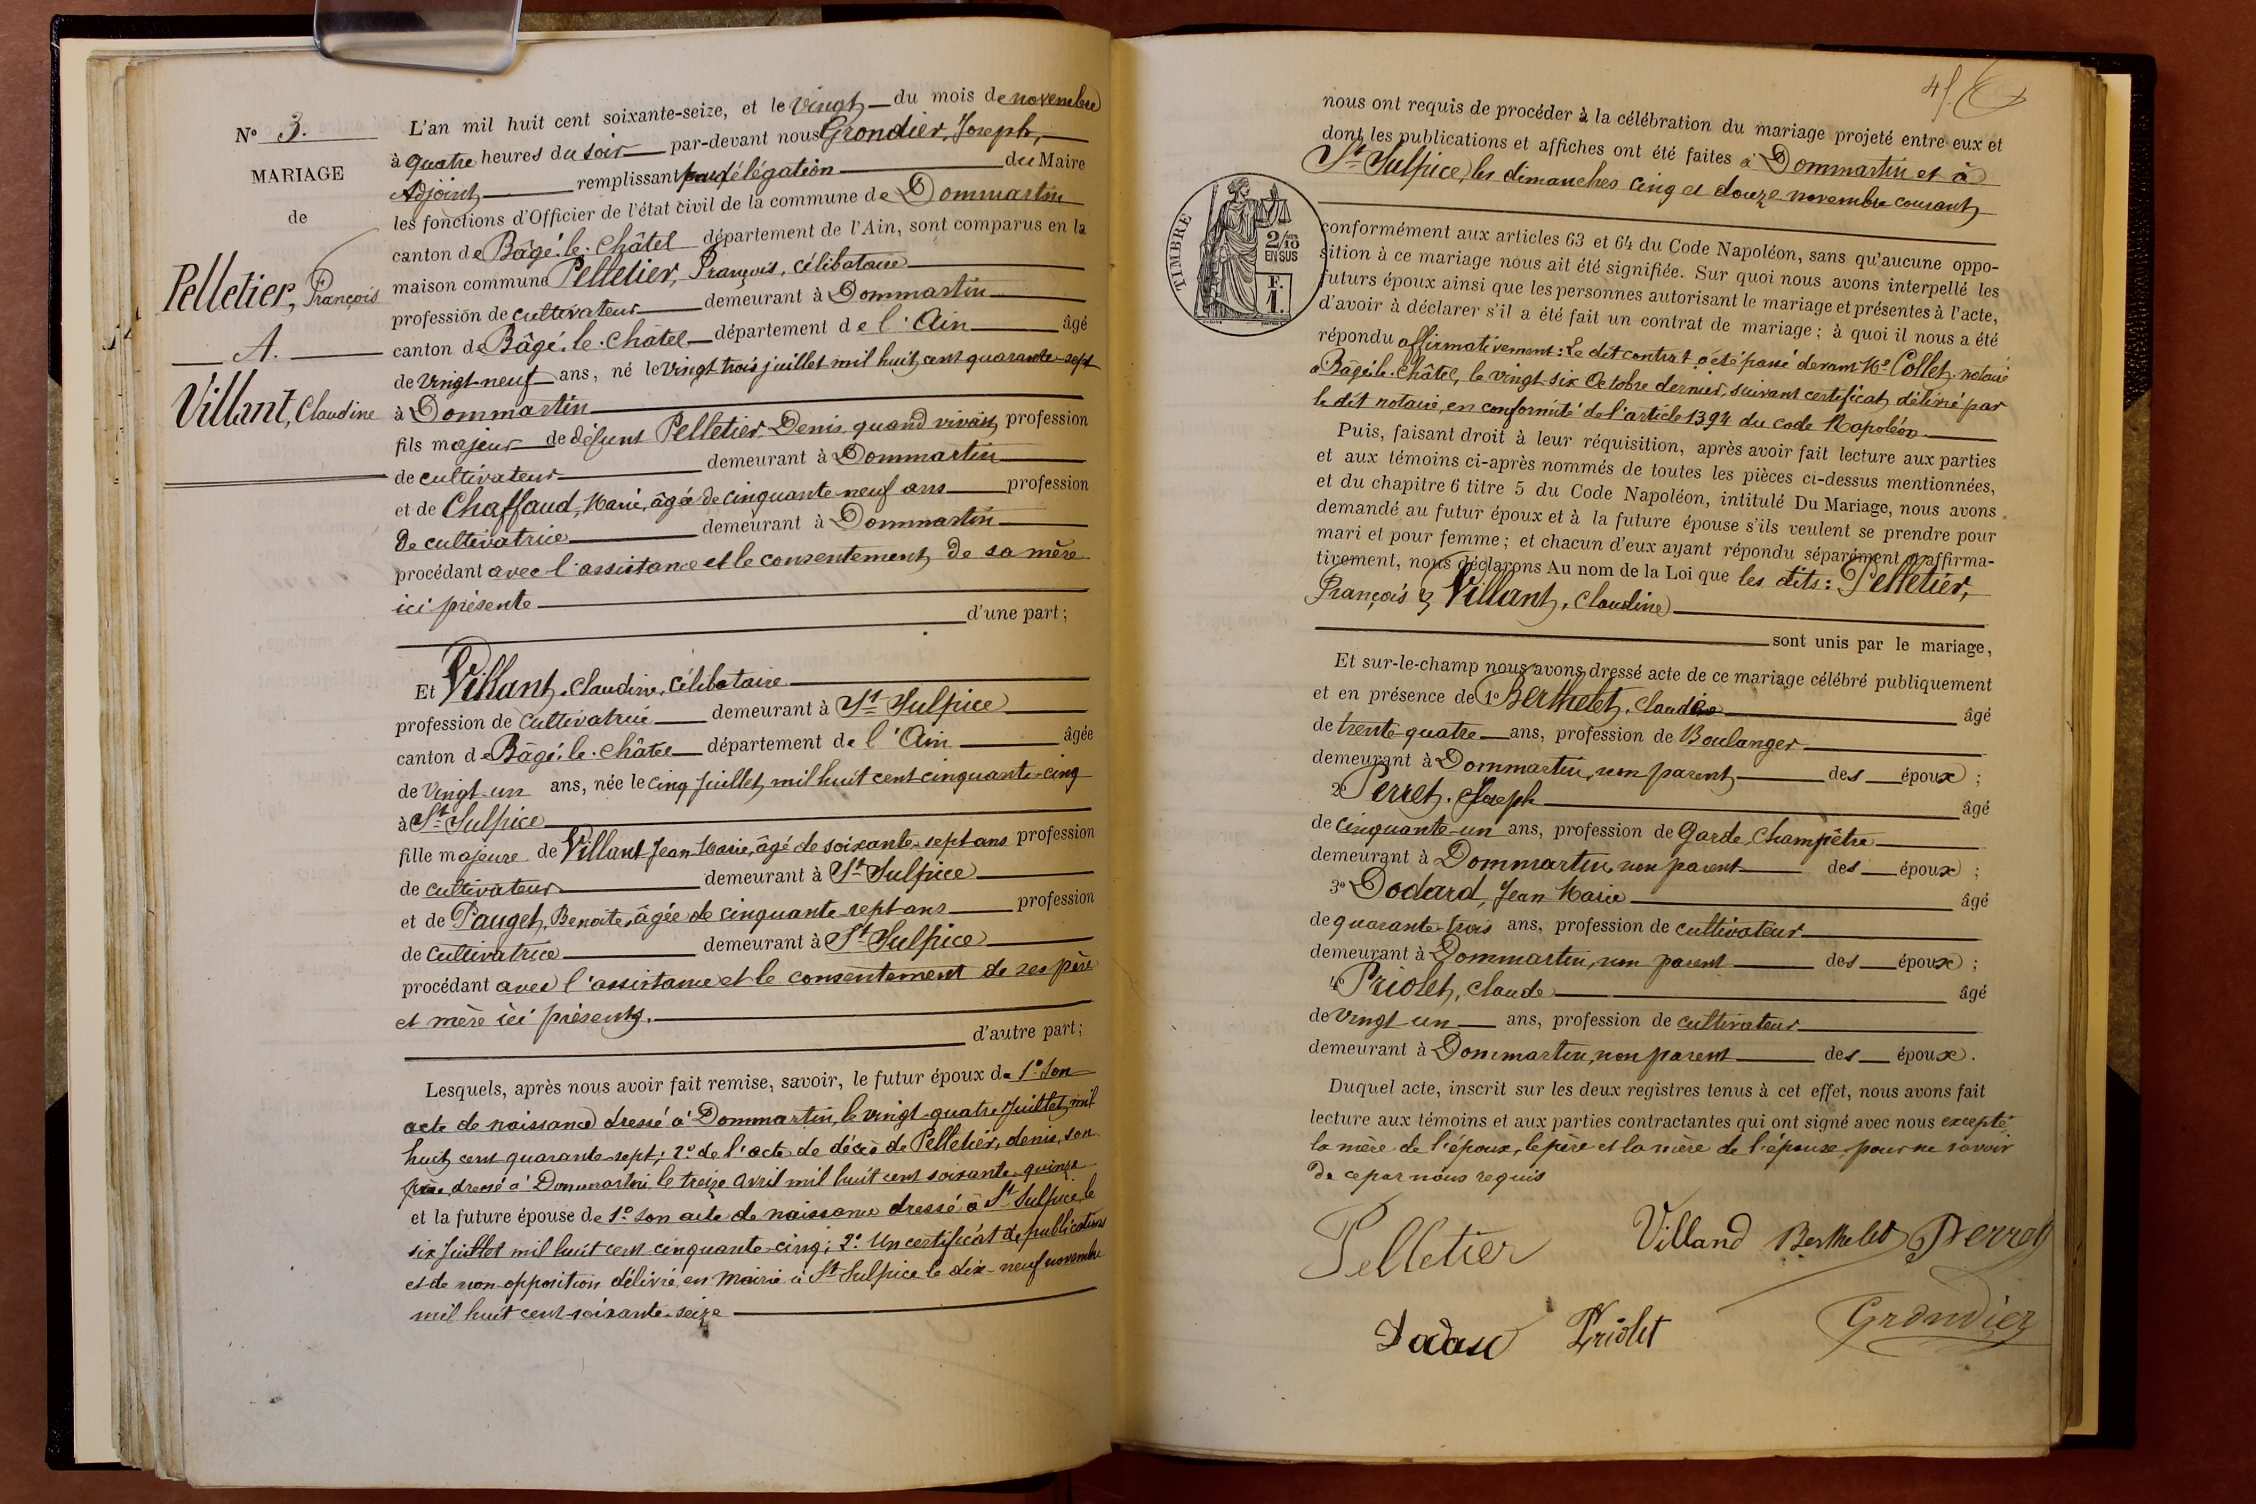 N° 3.
MARIAGE
de
Pelletier, François
A.
Villant, Claudine
L'an mil huit cent soixante-seize, et le vingt du mois de novembre
à quatre heures du soir par-devant nous Grondier, Joseph,
Adjoint remplissant par délégation du Maire
les fonctions d'Officier de l'état civil de la commune de Dommartin
canton de Bâgé-le-Châtel département de l'Ain, sont comparus en la
maison commune Pelletier, François, célibataire
profession de cultivateur demeurant à Dommartin
canton de Bâgé-le-Châtel département de l'Ain âgé
de vingt-neuf ans, né le vingt trois juillet mil huit cent quarante-sept
à Dommartin
fils majeur de défunt Pelletier Denis quand vivait, profession
de cultivateur demeurant à Dommartin
et de Chaffaud, Marie, âgée de cinquante neuf ans profession
de cultivatrice demeurant à Dommartin
procédant avec l'assistance et le consentement de sa mère
ici présente
d'une part;
Et Villant, Claudine, célibataire
profession de cultivatrice demeurant à St Sulpice
canton de Bâgé-le-Châtel département de l'Ain âgée
de vingt-un ans, née le cinq juillet mil huit cent cinquante-cinq
à St Sulpice
fille majeure de Villant Jean Marie, âgé de soixante-sept ans profession
de cultivateur demeurant à St Sulpice
et de Pauget, Benoite, âgée de cinquante-sept ans profession
de cultivatrice demeurant à St Sulpice
procédant avec l'assistance et le consentement de ses père
et mère ici présents.
d'autre part;
Lesquels, après nous avoir fait remise, savoir, le futur époux de 1° son
acte de naissance dressé à Dommartin, le vingt-quatre juillet mil
huit cent quarante-sept; 2° de l'acte de décès de Pelletier, denis, son
père, dressé à Dommartin le treize avril mil huit cent soixante-quinze
et la future épouse de 1° son acte de naissance dressé à St Sulpice, le
six juillet mil huit cent cinquante-cinq; 2° Un certificat de publications
et de non opposition délivré en Mairie à St Sulpice le dix-neuf novembre
mil huit cent soixante-seize
45
nous ont requis de procéder à la célébration du mariage projeté entre eux et
dont les publications et affiches ont été faites à Dommartin et à
St Sulpice, les dimanches cinq et douze novembre courant,
TIMBRE
2/10
EN SUS
F.
1.
conformément aux articles 63 et 64 du Code Napoléon, sans qu'aucune oppo-
sition à ce mariage nous ait été signifiée. Sur quoi nous avons interpellé les
futurs époux ainsi que les personnes autorisant le mariage et présentes à l'acte,
d'avoir à déclarer s'il a été fait un contrat de mariage; à quoi il nous a été
répondu affirmativement: Le dit contrat a été passé devant Me Collet, notaire
à Bâgé-le-Châtel, le vingt-six Octobre dernier, suivant certificat délivré par
le dit notaire, en conformité de l'article 1394 du code Napoléon.
Puis, faisant droit à leur réquisition, après avoir fait lecture aux parties
et aux témoins ci-après nommés de toutes les pièces ci-dessus mentionnées,
et du chapitre 6 titre 5 du Code Napoléon, intitulé Du Mariage, nous avons
demandé au futur époux et à la future épouse s'ils veulent se prendre pour
mari et pour femme; et chacun d'eux ayant répondu séparément et affirma-
tivement, nous déclarons Au nom de la Loi que les dits: Pelletier,
François & Villant, Claudine
sont unis par le mariage,
Et sur-le-champ nous avons dressé acte de ce mariage célébré publiquement
et en présence de 1° Berthelet, Claude âgé
de trente-quatre ans, profession de Boulanger
demeurant à Dommartin, non parent des époux;
2° Perret, Joseph âgé
de cinquante-un ans, profession de Garde Champêtre
demeurant à Dommartin, non parent des époux;
3° Dodard, Jean Marie âgé
de quarante-trois ans, profession de cultivateur
demeurant à Dommartin, non parent des époux;
4° Priolet, Claude âgé
de vingt un ans, profession de cultivateur
demeurant à Dommartin, non parent des époux.
Duquel acte, inscrit sur les deux registres tenus à cet effet, nous avons fait
lecture aux témoins et aux parties contractantes qui ont signé avec nous excepté
la mère de l'époux, le père et la mère de l'épouse, pour ne savoir
de ce par nous requis
Pelletier Villand Berthelet Perret
Dadard Priolet Grondier